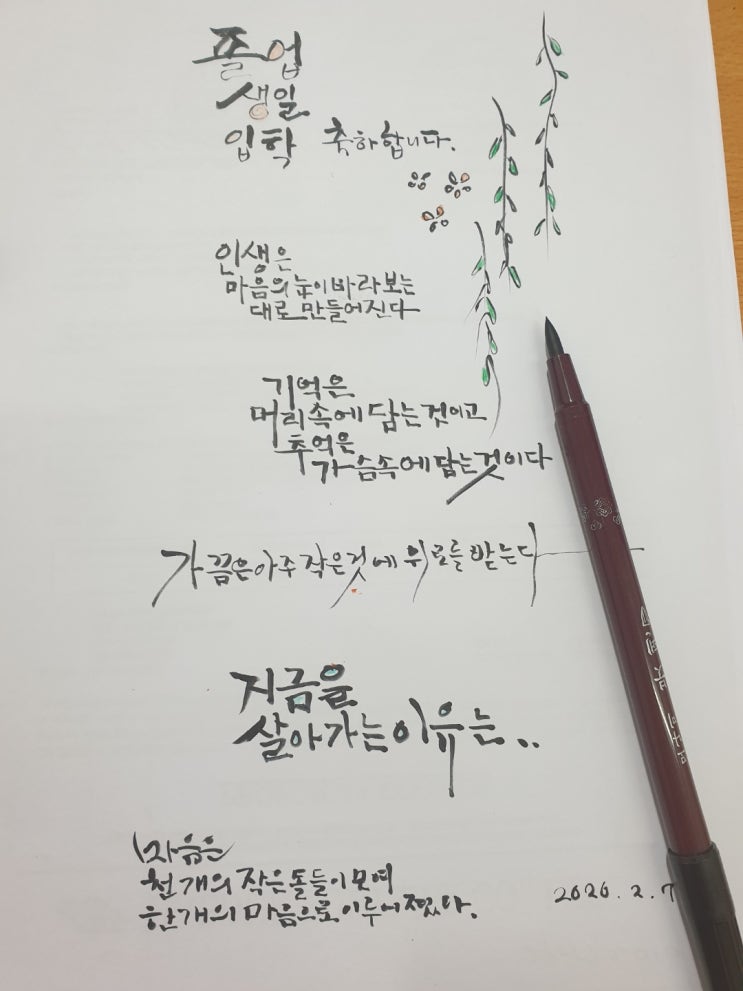 졸업
생일
입학 축하합니다.
인생은
마음의 눈이 바라보는
대로 만들어진다
기억은
머리속에 담는것이고
추억은
가슴속에 담는것이다
가끔은 아주 작은것에 위로를 받는다
지금을
살아가는 이유는..
마음은
천개의 작은 돌들이 모여
한개의 마음으로 이루어졌다.
2020.2.7